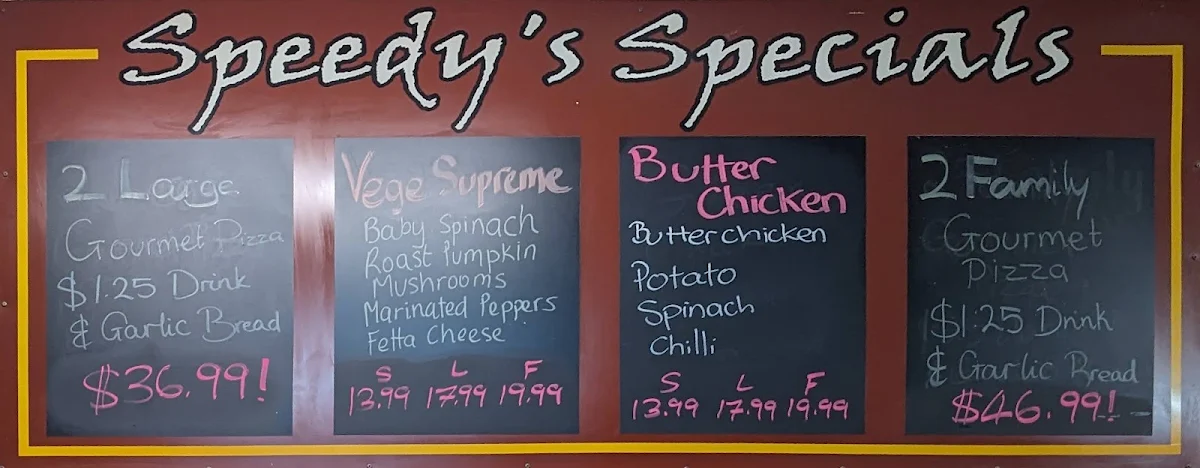 Speedy's Specials
2 Large
Gourmet Pizza
$1.25 Drink
& Garlic Bread
$36.99!
Vege Supreme
Baby Spinach
Roast Pumpkin
Mushrooms
Marinated Peppers
Fetta Cheese
S L F
13.99 17.99 19.99
Butter
Chicken
Butter chicken
Potato
Spinach
Chilli
S L F
13.99 17.99 19.99
2 Family
Gourmet
Pizza
$1.25 Drink
& Garlic Bread
$46.99!